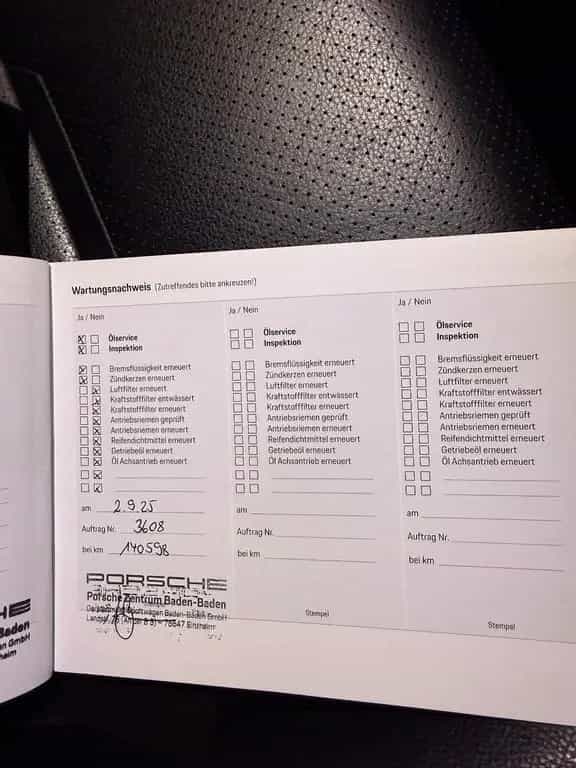 Wartungsnachweis (Zutreffendes bitte ankreuzen!)
Ja / Nein
Ölservice
Inspektion
Bremsflüssigkeit erneuert
Zündkerzen erneuert
Luftfilter erneuert
Kraftstofffilter entwässert
Kraftstofffilter erneuert
Antriebsriemen geprüft
Antriebsriemen erneuert
Reifendichtmittel erneuert
Getriebeöl erneuert
Öl Achsantrieb erneuert
am 2.9.25
Auftrag Nr. 3608
bei km 140598
PORSCHE
Porsche Zentrum Baden-Baden
Sportwagen Baden-Baden GmbH
76547 Sinzheim
Ja / Nein
Ölservice
Inspektion
Bremsflüssigkeit erneuert
Zündkerzen erneuert
Luftfilter erneuert
Kraftstofffilter entwässert
Kraftstofffilter erneuert
Antriebsriemen geprüft
Antriebsriemen erneuert
Reifendichtmittel erneuert
Getriebeöl erneuert
Öl Achsantrieb erneuert
am
Auftrag Nr.
bei km
Stempel
Ja / Nein
Ölservice
Inspektion
Bremsflüssigkeit erneuert
Zündkerzen erneuert
Luftfilter erneuert
Kraftstofffilter entwässert
Kraftstofffilter erneuert
Antriebsriemen geprüft
Antriebsriemen erneuert
Reifendichtmittel erneuert
Getriebeöl erneuert
Öl Achsantrieb erneuert
am
Auftrag Nr.
bei km
Stempel